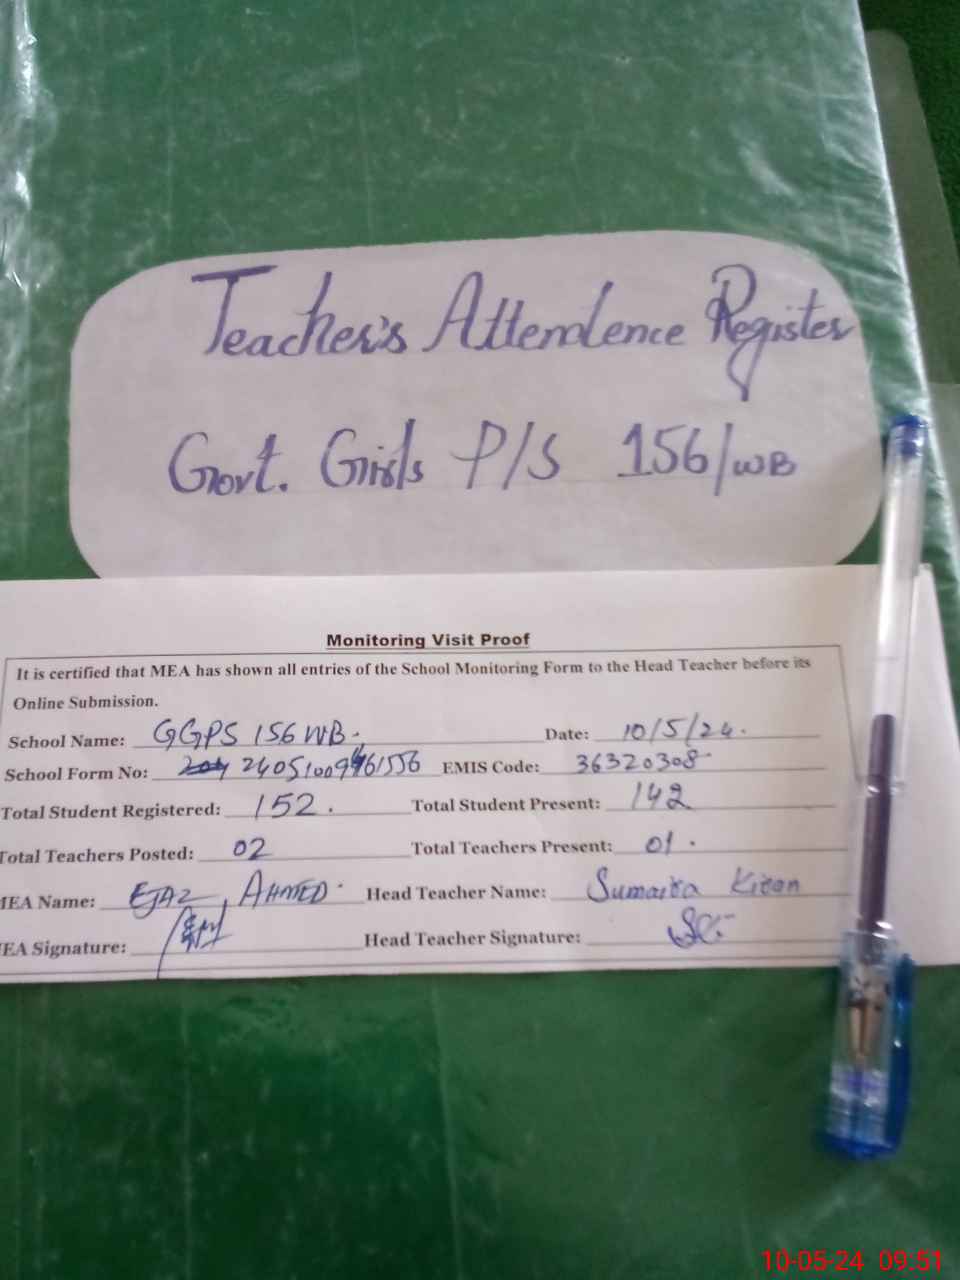 Teacher's Attendence Register
Govt. Girls P/S 156/WB
Monitoring Visit Proof
It is certified that MEA has shown all entries of the School Monitoring Form to the Head Teacher before its
Online Submission.
School Name: GGPS 156 WB. Date: 10/5/24.
School Form No: EMIS Code: 36320308
Total Student Registered: 152. Total Student Present: 142
Total Teachers Posted: 02 Total Teachers Present: 01.
MEA Name: EJAZ AHMED. Head Teacher Name: Sumaira Kiran
EA Signature: Head Teacher Signature:
10-05-24 09:51